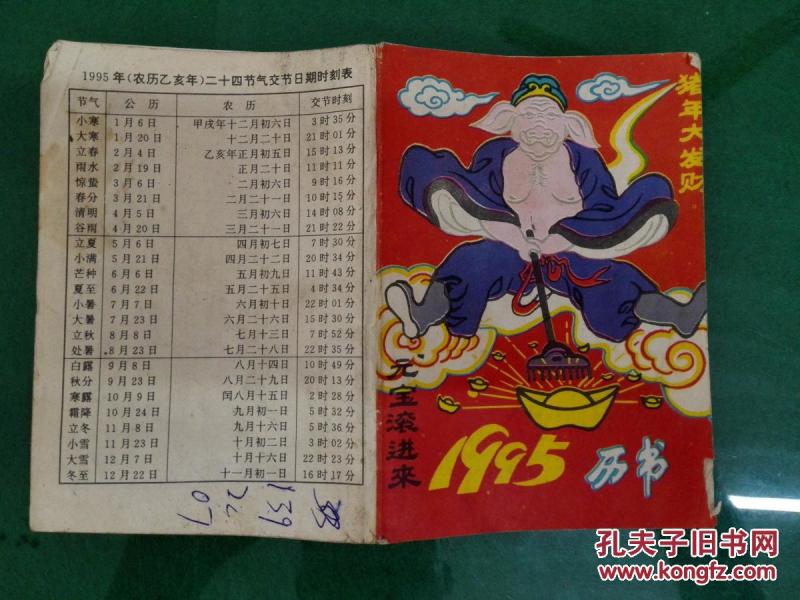 1995年(农历乙亥年)二十四节气交节日期时刻表
节气 公历 农历 交节时刻
小寒 1月6日 甲戌年十二月初六日 3时35分
大寒 1月20日 十二月二十日 21时01分
立春 2月4日 乙亥年正月初五日 15时13分
雨水 2月19日 正月二十日 11时11分
惊蛰 3月6日 二月初六日 9时16分
春分 3月21日 二月二十一日 10时15分
清明 4月5日 三月初六日 14时08分
谷雨 4月20日 三月二十一日 21时22分
立夏 5月6日 四月初七日 7时30分
小满 5月21日 四月二十二日 20时34分
芒种 6月6日 五月初九日 11时43分
夏至 6月22日 五月二十五日 4时34分
小暑 7月7日 六月初十日 22时01分
大暑 7月23日 六月二十六日 15时30分
立秋 8月8日 七月十三日 7时52分
处暑 8月23日 七月二十八日 22时35分
白露 9月8日 八月十四日 10时49分
秋分 9月23日 八月二十九日 20时13分
寒露 10月9日 闰八月十五日 2时28分
霜降 10月24日 九月初一日 5时32分
立冬 11月8日 九月十六日 5时36分
小雪 11月23日 十月初二日 3时02分
大雪 12月7日 十月十六日 22时23分
冬至 12月22日 十一月初一日 16时17分
139
07
猪年大发财
元宝滚进来
1995 历书
孔夫子旧书网
www.kongfz.com